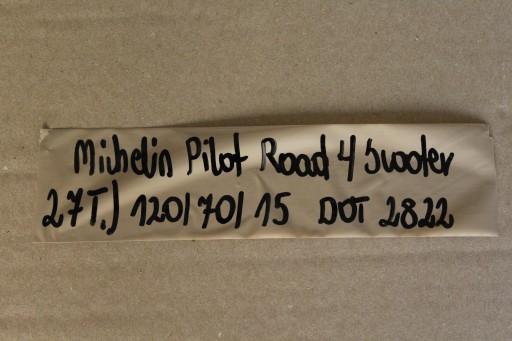 Michelin Pilot Road 4 Scooter
27T.) 120/70/15 DOT 2822